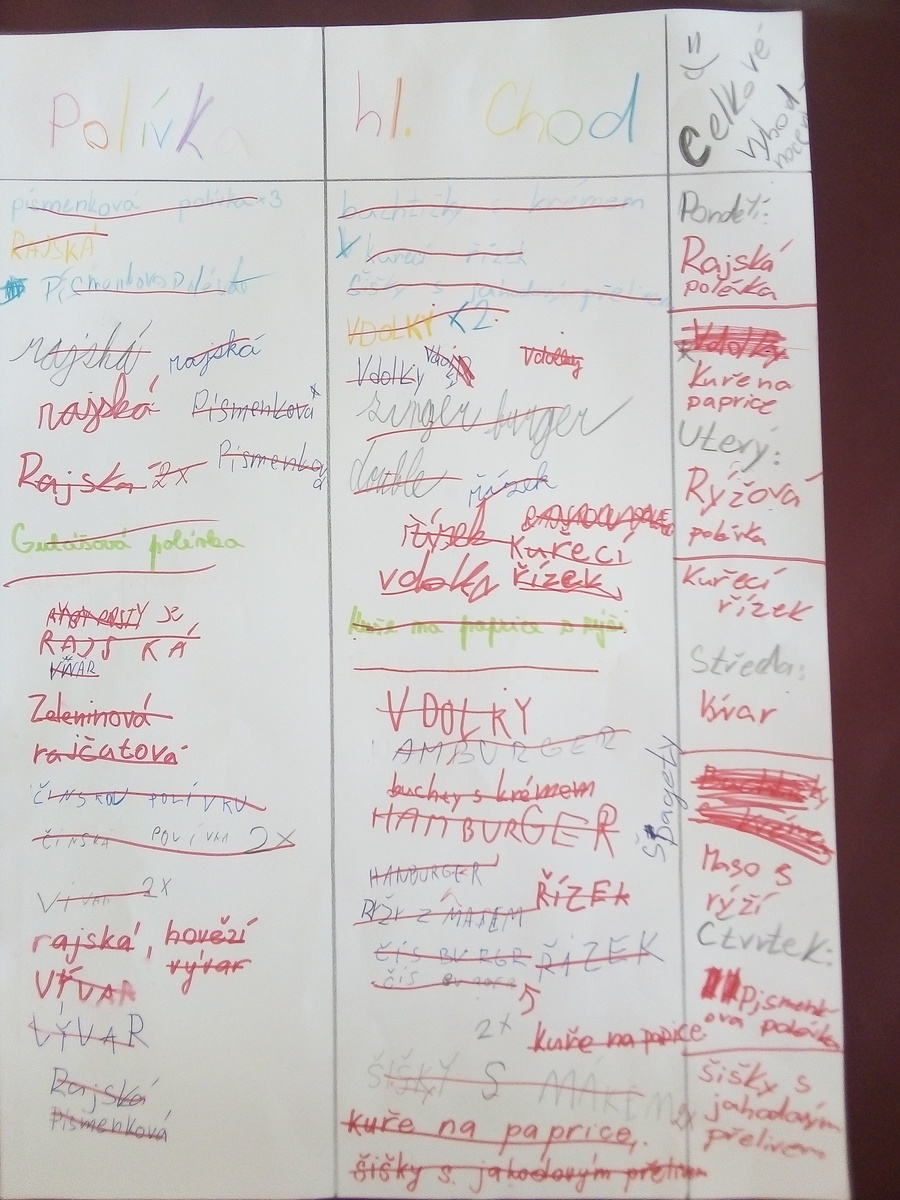 Polívka
písmenková polívka x3
RAJSKÁ
rajská rajská
rajská Písmenková
Rajská 2x Písmenko
Gulášová polévka
RAJSKÁ
VÍVAR
Zeleninová
rajčatová
ČÍNSKOU POLÍVKU
ČÍNSKÁ POLÍVKA 2x
VíVAR 2x
rajská, hovězí
vývar
VÝVAR
VÝVAR
Rajská
Písmenková
hl. Chod
buchtičky s krémem
kuřecí řízek
šišky s jahodovým přelivem
VDOLKY x2
Vdolky Vdolky
zinger burger
double řízek
řízek
Kuřecí
vdolky řízek
Kuře na paprice s rýží
VDOLKY
HAMBURGER
buchty s krémem
HAMBURGER
Špagety
HAMBURGER
ŘÍZEK
RÝŽI Z MASEM
ČÍS BURGR ŘÍZEK
ČÍS
2x
kuře na paprice
ŠIŠKY S MÁKEM 2x
kuře na paprice,
šišky s jahodovým přelivem
Celkové
vyhod-
nocení
Pondělí:
Rajská
polévka
Vdolky
Kuře na
paprice
Úterý:
Rýžová
polévka
Kuřecí
řízek
Středa:
Vývar
Maso s
rýží
Čtvrtek:
Pjsmenk-
ova polévka
šišky s
jahodovým
přelivem